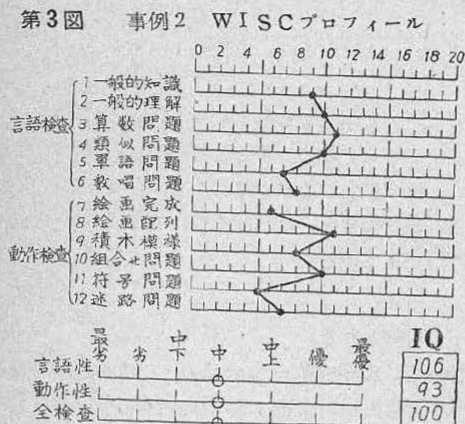 第3図 事例2 WISCプロフィール
0 2 4 6 8 10 12 14 16 18 20
言語検査
1 一般的知識
2 一般的理解
3 算数問題
4 類似問題
5 単語問題
6 数唱問題
動作検査
7 絵画完成
8 絵画配列
9 積木模様
10 組合せ問題
11 符号問題
12 迷路問題
最劣 劣 中下 中 中上 優 最優 IQ
言語性 106
動作性 93
全検査 100